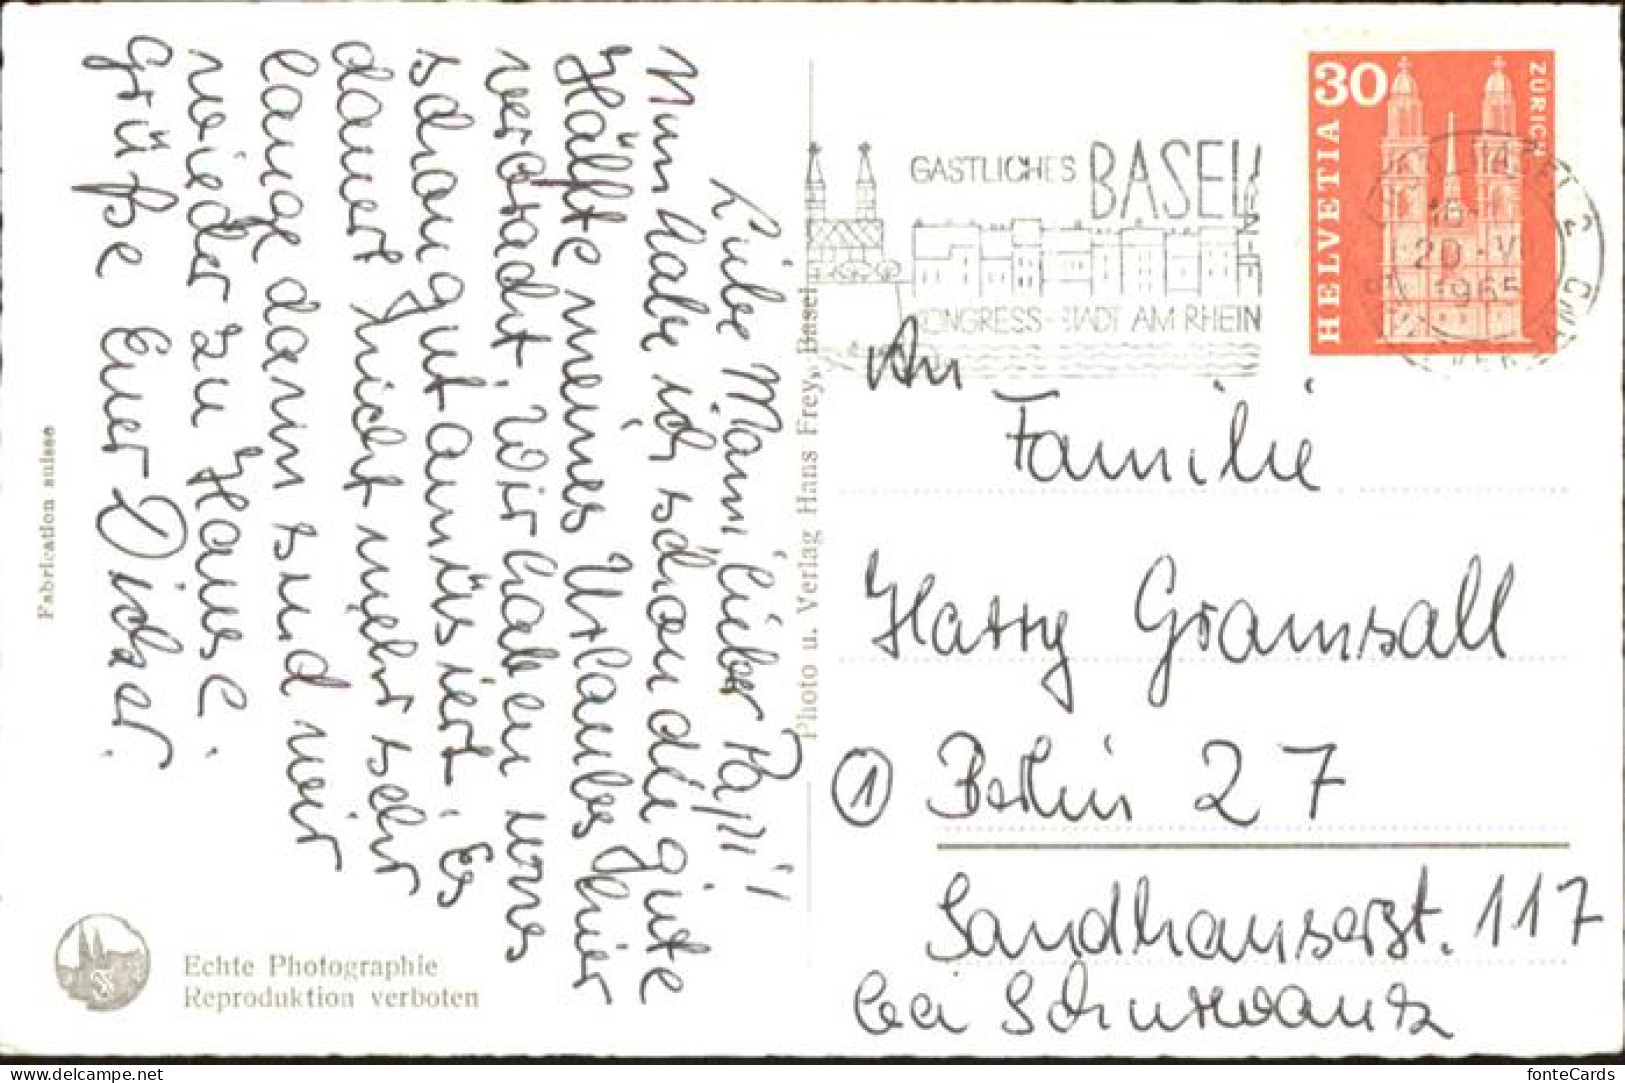 Liebe Mami, lieber Papi!
Nun habe ich schon die gute
Hälfte meines Urlaubes hier
verbracht. Wir haben uns
schon gut amüsiert. Es
dauert nicht mehr sehr
lange dann sind wir
wieder zu Hause.
Grüße Euer Dicker.
Fabrication suisse
Echte Photographie
Reproduktion verboten
Photo u. Verlag Hans Frey, Basel
GASTLICHES BASEL
KONGRESS-STADT AM RHEIN
30
HELVETIA
ZÜRICH
20.-V
1965
An
Familie
Harry Gramsall
① Berlin 27
Sandhauserst. 117
bei
fonteCards